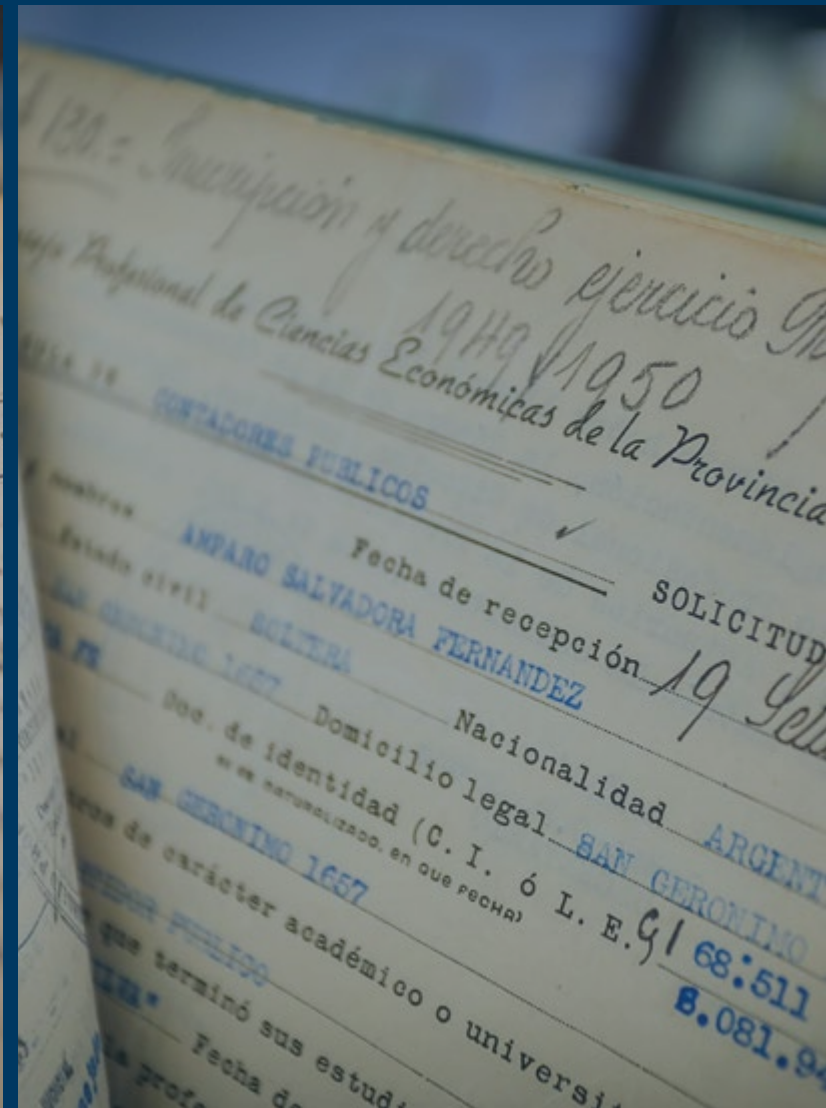 130.= Inscripción y derecho ejercicio
1949/1950
Profesional de Ciencias Económicas de la Provincia
CONTADORES PUBLICOS
SOLICITUD
Fecha de recepción 19
nombres AMPARO SALVADORA FERNANDEZ
Estado civil SOLTERA Nacionalidad ARGENT
SAN GERONIMO 1657 Domicilio legal SAN GERONIMO
FE Doc. de identidad (C. I. ó L. E. CI 68:511
SI ES NATURALIZADO, EN QUE FECHA) 8.081.94
SAN GERONIMO 1657
de carácter académico o universi
PUBLICO
que terminó sus estudi
Fecha de
profe